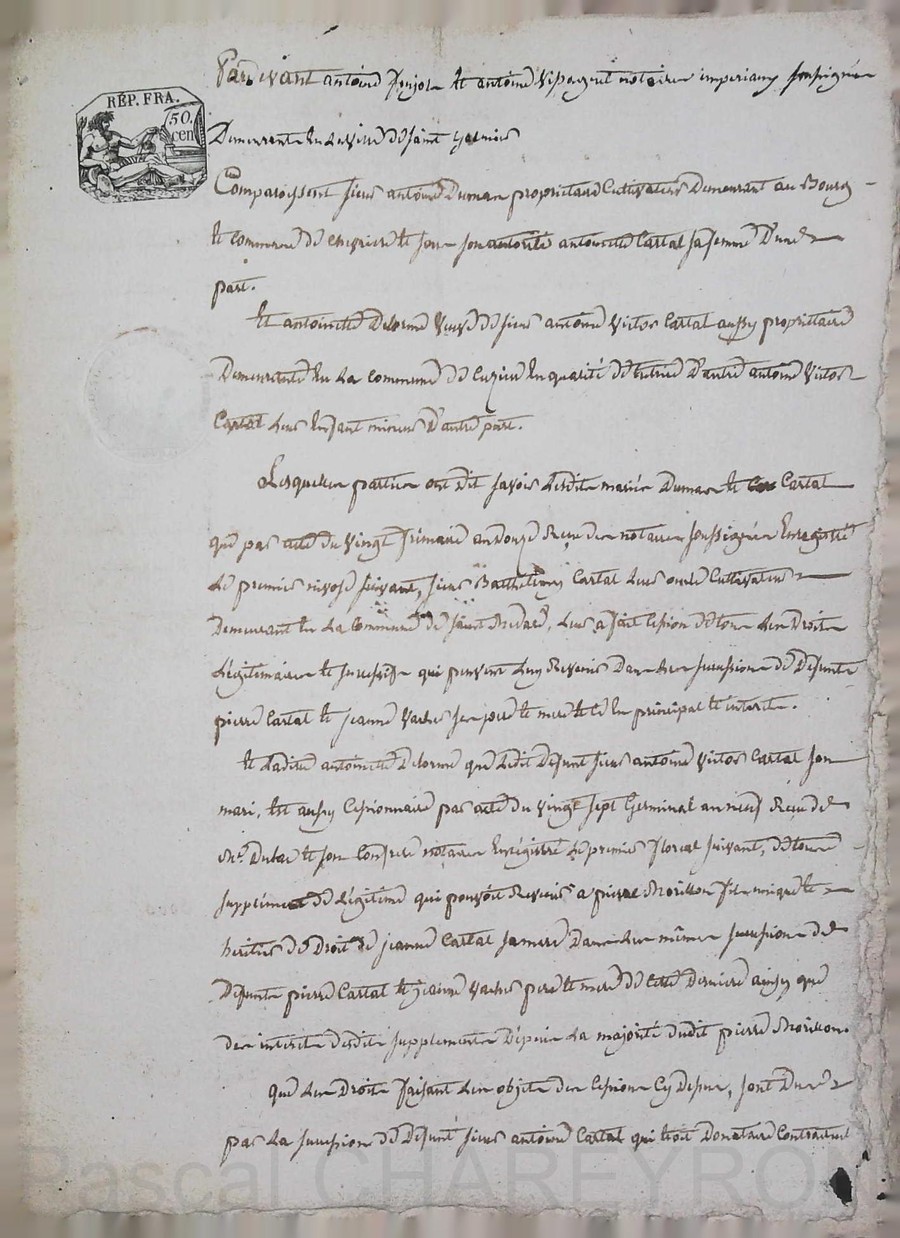 RÉP. FRA.
50.
cen
Pardevant antoine et antoine notaires imperiaux soussignés
Demeurants en la ville de saint galmier
Comparoissent sieur antoine Dumas propriétaire Cultivateur Demeurant au Bourg
et commune de chevrieres et sous son autorité antoinette Cartal sa femme D'une
part.
Et antoinette Delorme Veuve de sieur antoine Victor Cartal aussy propriétaire
Demeurante en La Commune de Cuzieu En qualité de tutrice D'autre antoine Victor
Cartal Leur Enfant mineur D'autre part.
Lesquelles parties ont dit savoir Lesdits mariés Dumas et Cartal
que par acte du Vingt frimaire an Douze Reçu des notaires soussignés Enregistré
Le premier nivose suivant, sieur Barthelemy Cartal Leur oncle Cultivateur
Demeurant en La Commune de saint Medard, Leur a fait cession de tous Les Droits
Légitimaires et successifs qui peuvent Luy Revenir Dans Les successions de Défunts
pierre Cartal et jeanne Vacher ses pere et mere et ce En principal et interets.
Et Ladite antoinette Delorme que Ledit Défunt sieur antoine Victor Cartal son
mari, Est aussy Cessionnaire par acte du Vingt sept Germinal an neuf Reçu de
Me. et son Confrere notaires Enregistré Le premier floreal suivant, de tous
supplément de Légitime qui pouvoit Revenir a pierre Morisson fils unique et
heritier de Droit de jeanne Cartal sa mere Dans Les mêmes successions de
Défunts pierre Cartal et jeanne Vacher pere et mere de cette Derniere ainsy que
des interets desdits suppléments Depuis La majorité dudit pierre Morisson.
Que Les Droits faisant Les objets des Cessions Cy Dessus, sont Dus
par La succession de Défunt sieur antoine Cartal qui Etoit Donataire Contractuel
Pascal CHAREYRON